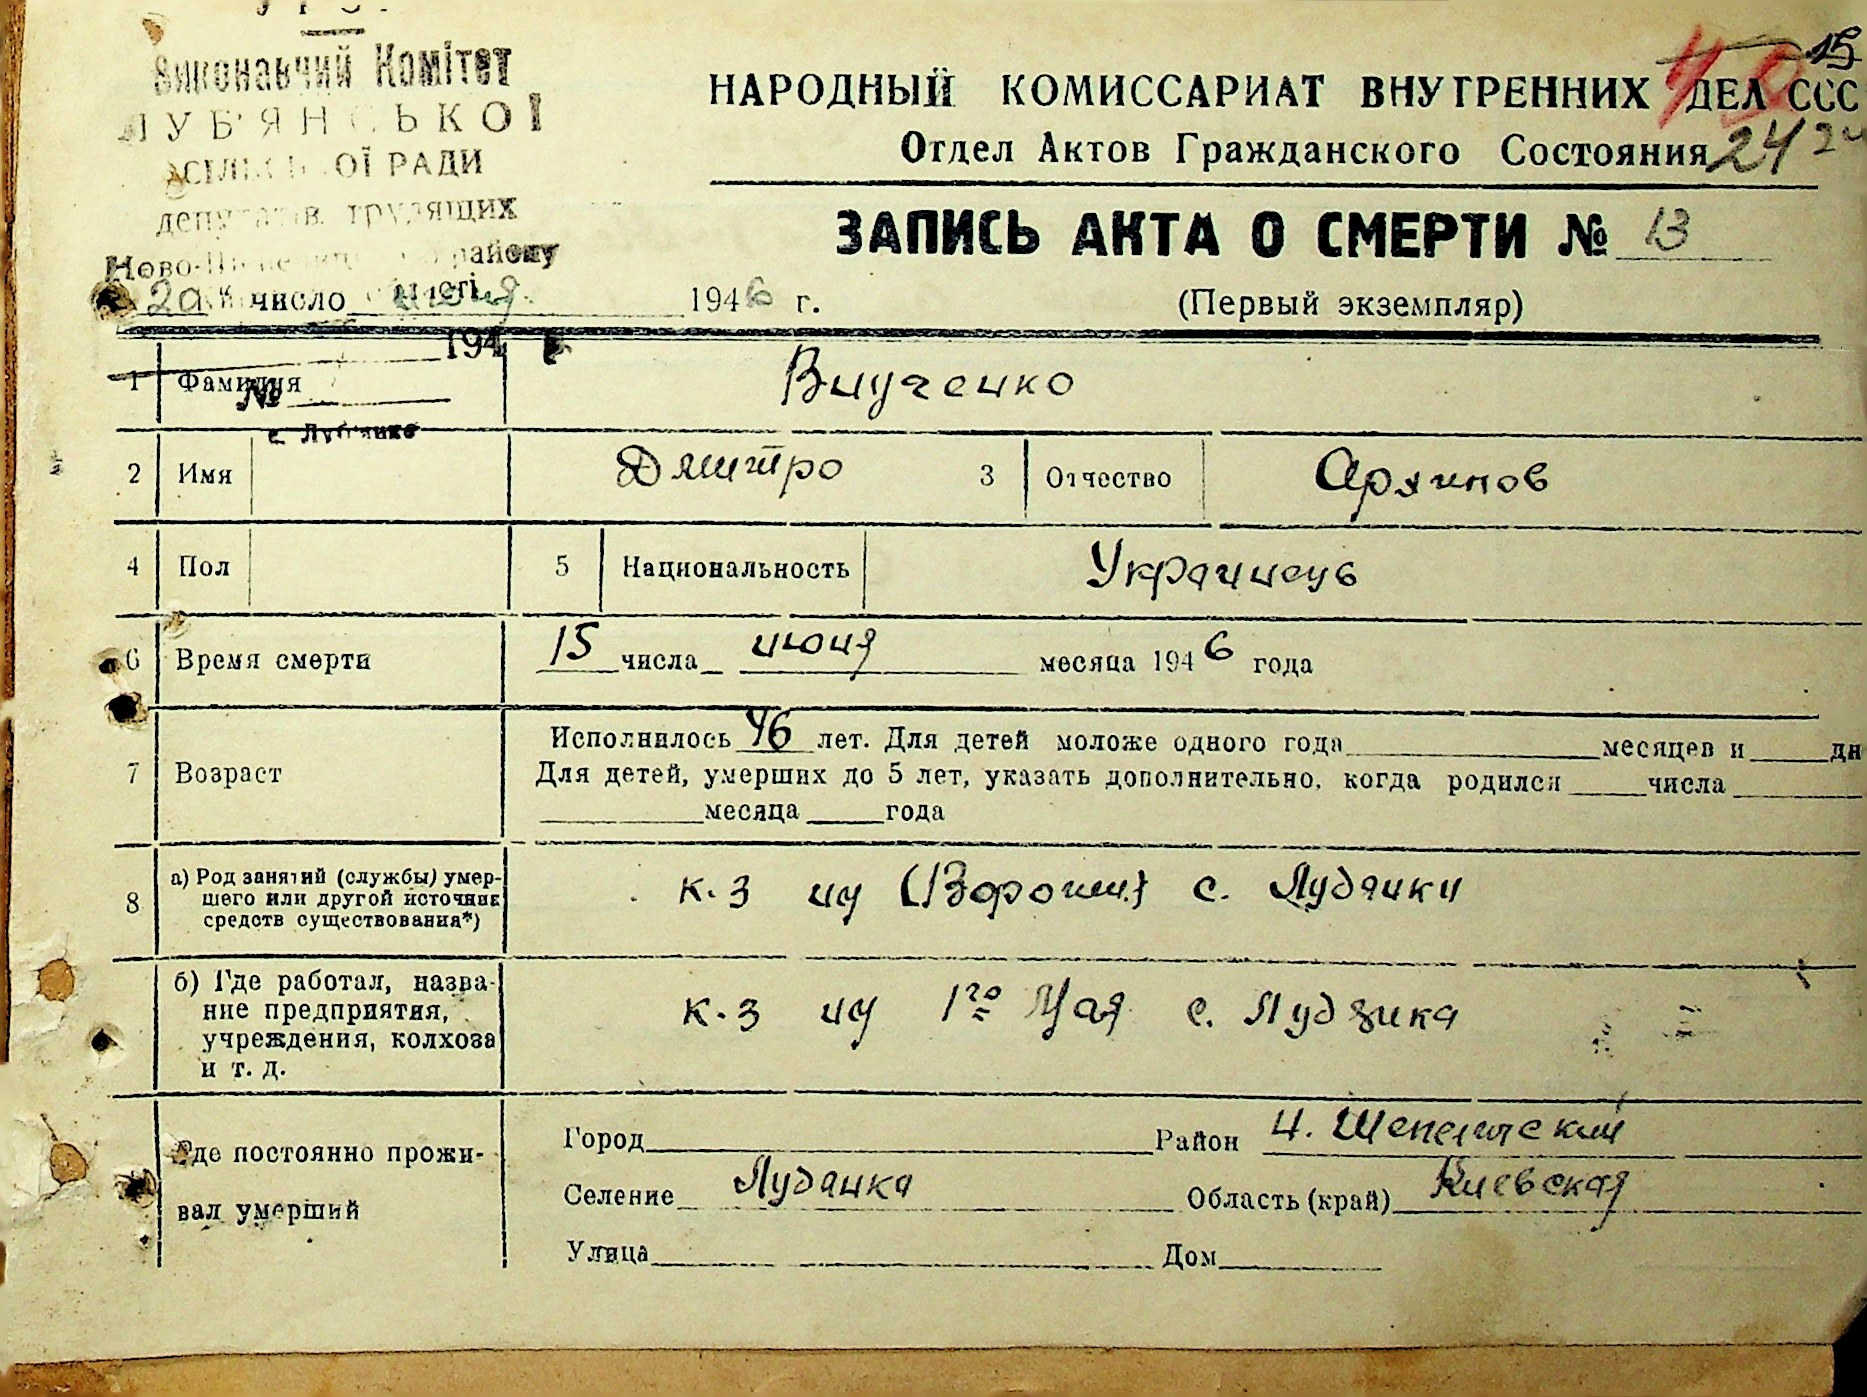 Виконавчий Комітет
ЛУБ'ЯНСЬКОЇ
СІЛЬСЬКОЇ РАДИ
депутатів трудящих
району
194
№
с. Луб'янка
15
НАРОДНЫЙ КОМИССАРИАТ ВНУТРЕННИХ ДЕЛ ССС
Отдел Актов Гражданского Состояния 24 24
ЗАПИСЬ АКТА О СМЕРТИ № 13
число 1946 г. (Первый экземпляр)
1 Фамилия
2 Имя Дмитро 3 Отчество Архипов
4 Пол 5 Национальность Украинець
6 Время смерти 15 числа июня месяца 1946 года
7 Возраст
Исполнилось 46 лет. Для детей моложе одного года месяцев и дн
Для детей, умерших до 5 лет, указать дополнительно, когда родился числа
месяца года
8 а) Род занятий (службы) умер-
шего или другой источник
средств существования*)
к-з им (Ворошил) с. Лубянки
б) Где работал, назва-
ние предприятия,
учреждения, колхоза
и т. д.
к-з им 1го Мая с. Лубянка
Где постоянно прожи-
вал умерший
Город Район Н. Шепеличский
Селение Лубянка Область (край) Киевская
Улица Дом